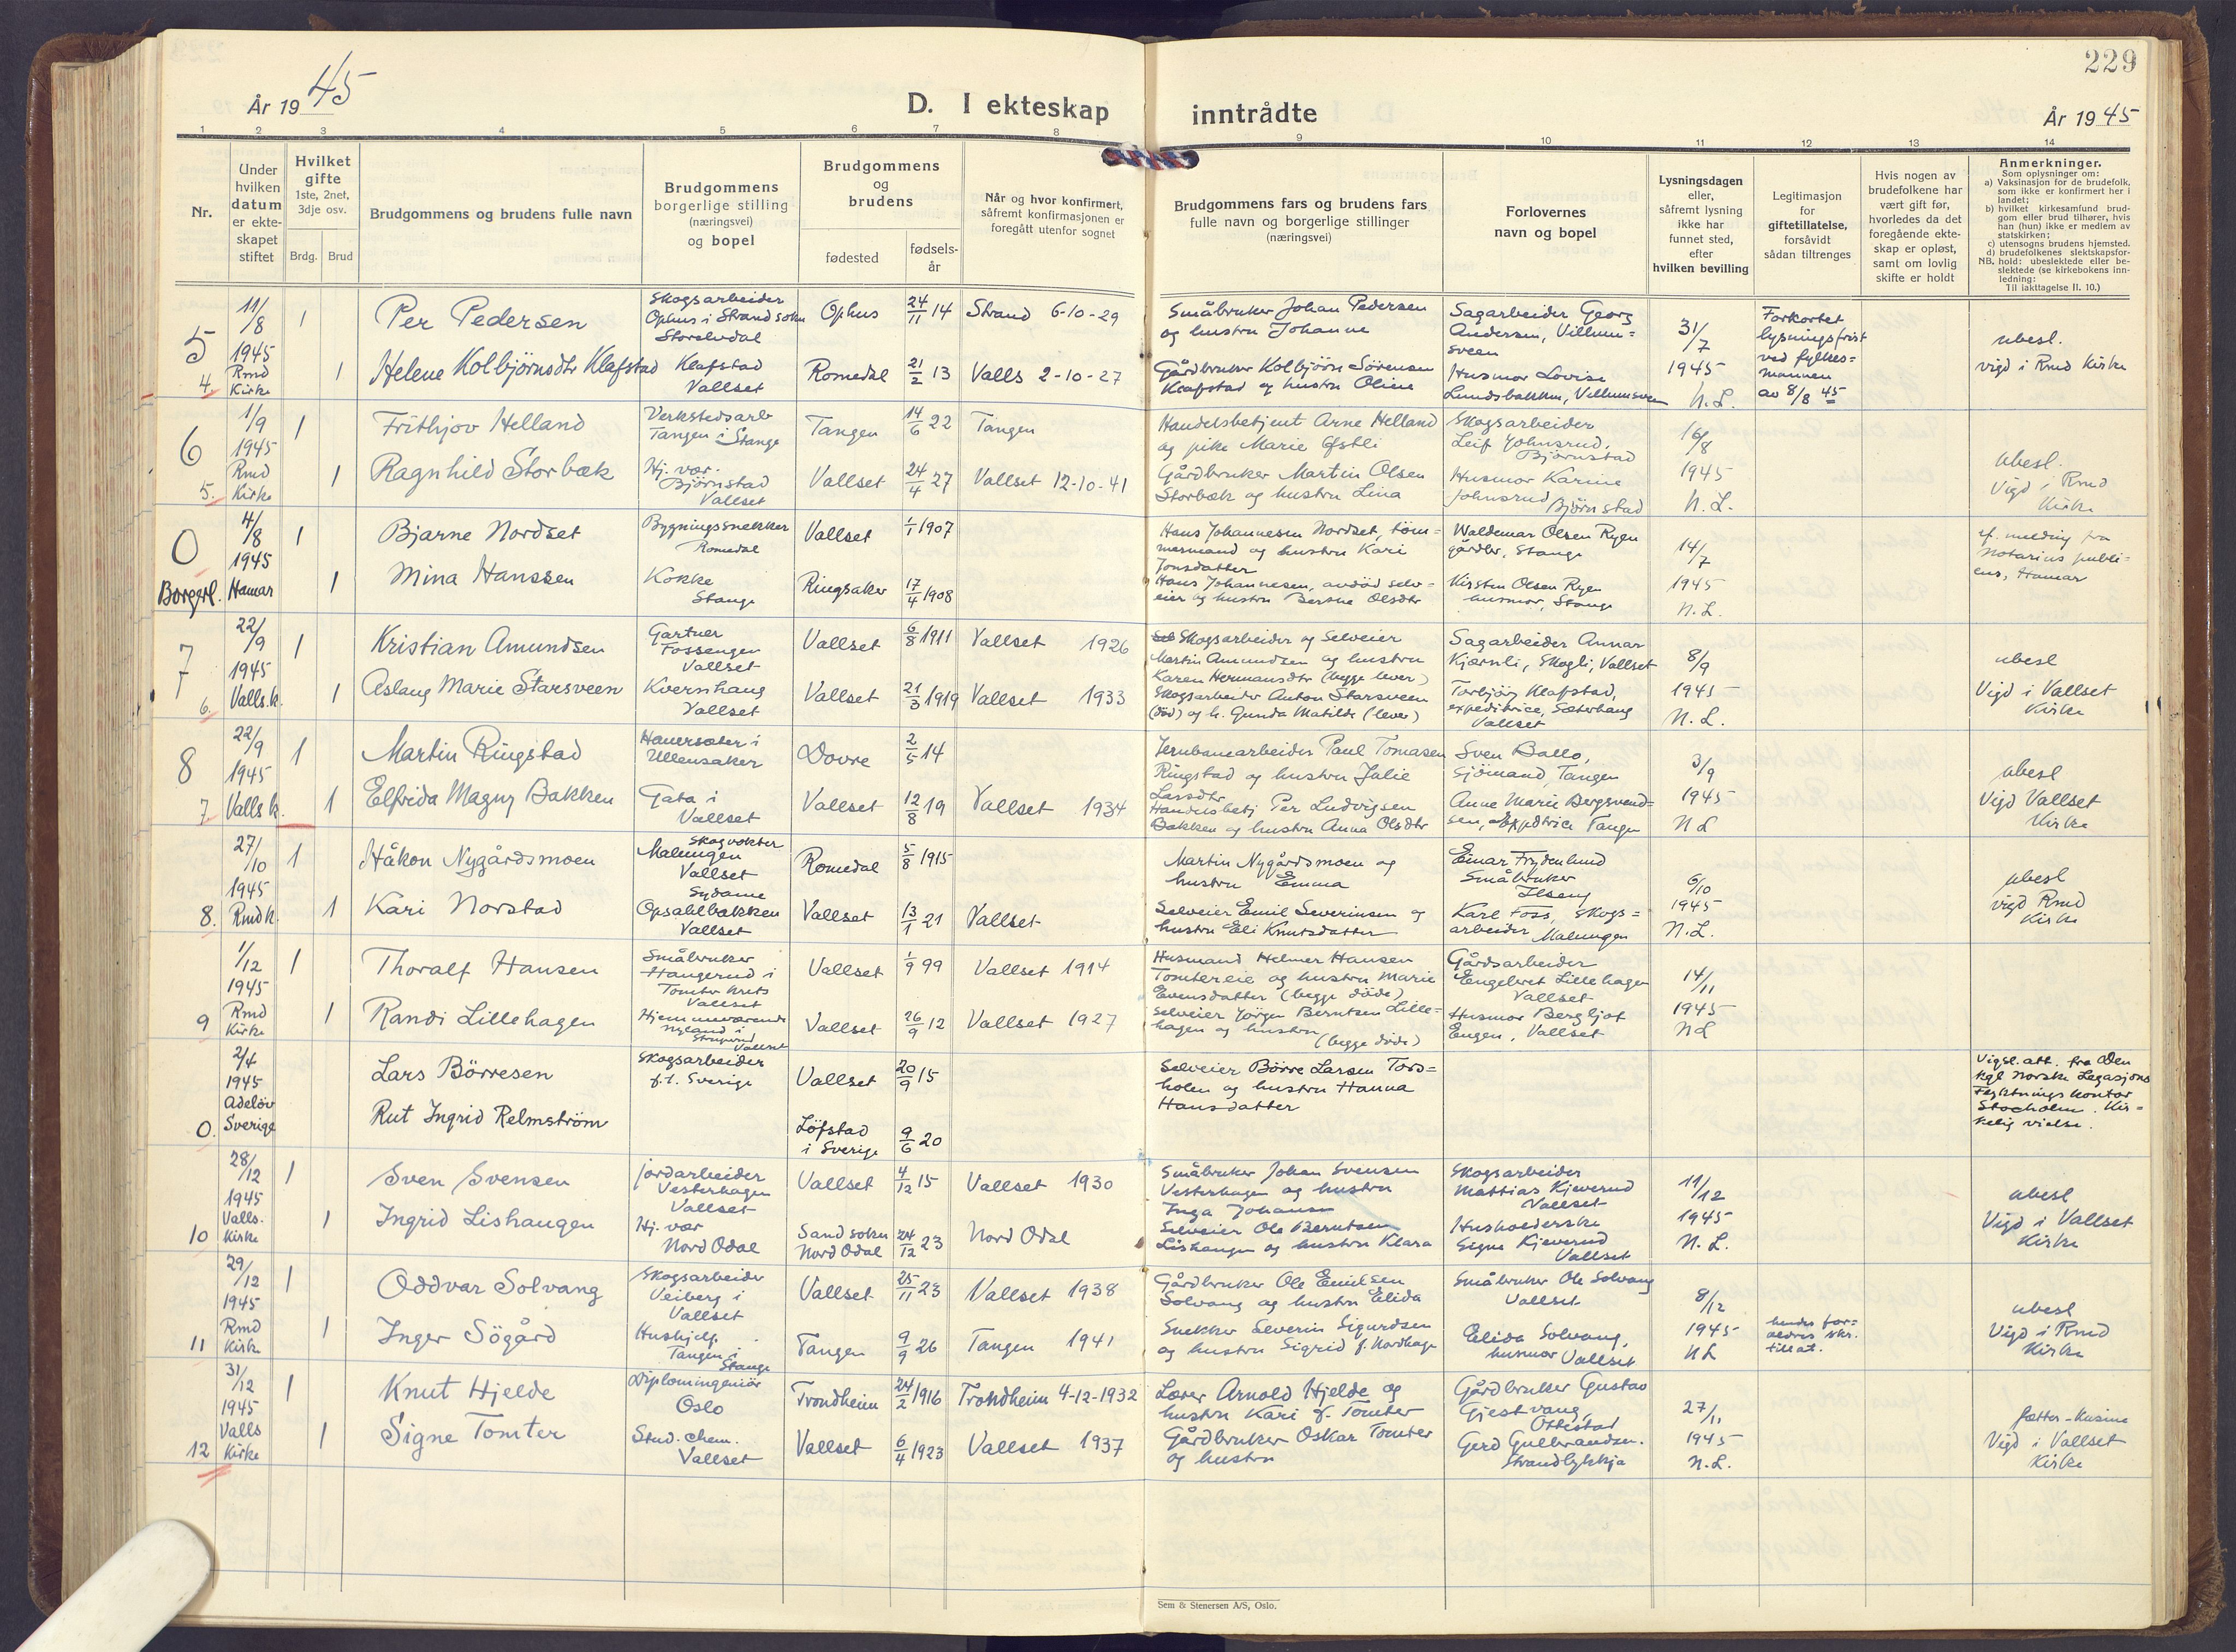 229
År 1945
D. I ekteskap inntrådte
År 1945
1 2 3 4 5 6 7 8 9 10 11 12 13 14
Nr.
Under hvilken datum er ekte-skapet stiftet
Hvilket gifte 1ste, 2net, 3dje osv.
Brdg. Brud
Brudgommens og brudens fulle navn
Brudgommens borgerlige stilling (næringsvei) og bopel
Brudgommens og brudens
fødested
fødsels-år
Når og hvor konfirmert, såfremt konfirmasjonen er foregått utenfor sognet
Brudgommens fars og brudens fars fulle navn og borgerlige stillinger (næringsvei)
Forlovernes navn og bopel
Lysningsdagen eller, såfremt lysning ikke har funnet sted, efter hvilken bevilling
Legitimasjon for giftetillatelse, forsåvidt sådan tiltrenges
Hvis nogen av brudefolkene har vært gift før, hvorledes da det foregående ekte-skap er opløst, samt om lovlig skifte er holdt
Anmerkninger.
Som oplysninger om:
a) Vaksinasjon for de brudefolk, som ikke er konfirmert her i landet;
b) hvilket kirkesamfund brud-gom eller brud tilhører, hvis han (hun) ikke er medlem av statskirken;
c) utensogns brudens hjemsted.
d) brudefolkenes slektskapsfor-hold: ubeslektede eller be-slektede (se kirkebokens inn-ledning:
NB.
Til iakttagelse II. 10.)
5
4.
11/8 1945 Rmd Kirke
1
Per Pedersen
Skogsarbeider
Ophus i Strand sokn
Storelvdal
Ophus 24/11 14 Strand 6-10-29
Småbruker Johan Pedersen
og hustru Johanne
Sagarbeider Georg
Andersen, Villum=
sveen
31/7
1945
N.L.
Forkortet
lysningsfrist
ved fylkes=
mannen
av 8/8 45
ubesl.
vigd i Rmd Kirke
1
Helene Kolbjörnsdtr Klafstad
Klafstad
Vallset
Romedal 21/2 13 Valls 2-10-27
Gårdbruker Kolbjörn Sörensen
Klafstad og hustru Oline
Husmor Lovise
Lundsbakken, Villumsveen
6
5.
1/9 1945 Rmd Kirke
1
Frithjov Helland
Verkstedsarb
Tangen i Stange
Tangen 14/6 22 Tangen
Handelsbetjent Arne Helland
og pike Marie Østli
Skogsarbeider
Leif Johnsrud,
Björnstad
16/8
1945
N.L.
ubesl.
Vigd i Rmd
Kirke
1
Ragnhild Storbæk
Hj. vær.
Björnstad
Vallset
Vallset 24/4 27 Vallset 12-10-41
Gårdbruker Martin Olsen
Storbæk og hustru Lina
Husmor Karine
Johnsrud Björnstad
0
Borgerl.
4/8 1945 Hamar
1
Bjarne Nordset
Bygningssnekker
Romedal
Vallset 1/1 1907
Hans Johannesen Nordset, töm=
mermand og hustru Kari
Jonsdatter
Waldemar Olsen Rygen
gårdbr, Stange
14/7
1945
N.L.
cf. melding fra
notarius publi=
cus, Hamar
1
Mina Hanssen
Kokke
Stange
Ringsaker 17/4 1908
Hans Johannesen, avdöd selv=
eier og hustru Berthe Olsdtr
Kirsten Olsen Rygen
husmor, Stange
7
6.
22/9 1945 Valls.k.
1
Kristian Amundsen
Gartner
Fossengen
Vallset
Vallset 6/8 1911 Vallset 1926
Skogsarbeider og Selveier
Martin Amundsen og hustru
Karen Hermansdtr (begge lever)
Sagarbeider Annar
Kjærnli, Skogli, Vallset
8/9
1945
N.L.
ubesl
Vigd i Vallset
Kirke
1
Aslaug Marie Starsveen
Kvernhaug
Vallset
Vallset 21/3 1919 Vallset 1933
Skogsarbeider Anton Starsveen
(död) og h. Gunda Matilde (lever)
Torbjörg Klafstad,
expeditrice, Sæterhaug
Vallset
8
7
22/9 1945 Valls k.
1
Martin Ringstad
Hauersæter i
Ullensaker
Dovre 2/5 14
Jernbanearbeider Paul Tomasen
Ringstad og hustru Julie
Larsdtr
Sven Ballo,
Sjömand, Tangen
3/9
1945
N L
ubesl
Vigd Vallset
Kirke
1
Elfrida Magny Bakken
Gata i
Vallset
Vallset 12/8 19 Vallset 1934
Handelsbetj Per Ludvigsen
Bakken og hustru Anna Olsdtr
Anne Marie Bergsvend=
sen, Expeditrice Tangen
8.
27/10 1945 Rmd k.
1
Håkon Nygårdsmoen
Skogvokter
Malungen
Vallset
Romedal 5/8 1915
Martin Nygårdsmoen og
hustru Emma
Einar Frydenlund
Småbruker
Ilseng
6/10
1945
N.L.
ubesl
vigd Rmd
Kirke
1
Kari Norstad
Sydame
Opsahlbakken
Vallset
Vallset 13/1 21 Vallset
Selveier Emil Severinsen og
hustru Eli Knutsdatter
Karl Foss, Skogs=
arbeider Malungen
9
1/12 1945 Rmd Kirke
1
Thoralf Hansen
Småbruker
Haugerud i
Tomter krets
Vallset
Vallset 1/9 99 Vallset 1914
Husmand Helmer Hansen
Tomtereie og hustru Marie
Evensdatter (begge döde)
Gårdsarbeider
Engebret Lillehagen
Vallset
14/11
1945
N L
1
Randi Lillehagen
Hjemmeværende
Nyland i
Vallset
Vallset 26/9 12 Vallset 1927
Selveier Jörgen Berntsen Lille=
hagen og hustru
(begge döde)
Husmor Bergljot
Engen, Vallset
0.
2/4 1945 Adelöv Sverige
Lars Börresen
Skogsarbeider
f.t. Sverige
Vallset 20/9 15
Selveier Börre Larsen Tord=
holen og hustru Hanna
Hansdatter
Vigsl.att. fra Den
kgl Norske Legasjons
Flyktnings kontor
Stocholm. Kir=
kelig vielse.
Rut Ingrid Relmström
Löfstad
i Sverige
9/6 20
10
28/12 1945 Valls. Kirke
1
Sven Svensen
jordarbeider
Vesterhagen
Vallset
Vallset 4/12 15 Vallset 1930
Småbruker Johan Svensen
Vesterhagen og hustru
Inga Johansen
Skogsarbeider
Mattias Kjeverud
Vallset
11/12
1945
N.L.
ubesl
Vigd i Vallset
Kirke
1
Ingrid Lishaugen
Hj. vær
Nord Odal
Sand sokn
Nord Odal
24/12 23 Nord Odal
Selveier Ole Berntsen
Lishaugen og hustru Klara
Husholderske
Signe Kjeverud
Vallset
11
29/12 1945 Rmd Kirk
1
Oddvar Solvang
Skogsarbeider
Veiberg i
Vallset
Vallset 25/11 23 Vallset 1938
Gårdbruker Ole Emilsen
Solvang og hustru Elida
Småbruker Ole Solvang
Vallset
8/12
1945
N L
hendes for=
ældres skr.
tillat.
ubesl
Vigd i Rmd
Kirke
1
Inger Sögård
Hushjelp.
Tangen i
Stange
Tangen 9/9 26 Tangen 1941
Snekker Severin Sigurdsen
og hustru Sigrid f. Nordhage
Elida Solvang,
husmor Vallset
12
31/12 1945 Valls Kirke
1
Knut Hjelde
Diplomingeniör
Oslo
Trondheim 24/2 1916 Trondheim 4-12-1932
Lærer Arnold Hjelde og
hustru Kari f. Tomter
Gårdbruker Gustav
Gjestvang,
Ottestad
27/11
1945
N.L.
fætter-kusine
Vigd i Vallset
Kirke
1
Signe Tomter
Stud. chem.
Vallset
Vallset 6/4 1923 Vallset 1937
Gårdbruker Oskar Tomter
og hustru
Gerd Gulbrandsen.
Strandlykkja
Sem & Stenersen A/S, Oslo.